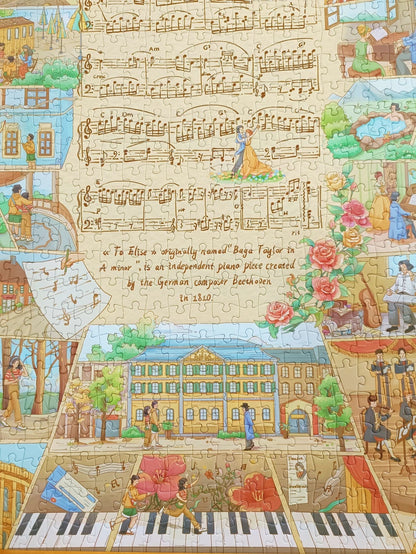 Am
G7
C
« To Elise » originally named" Baga Taylor in
A minor , is an independent piano piece created
by the German composer Beethoven
in 1810.